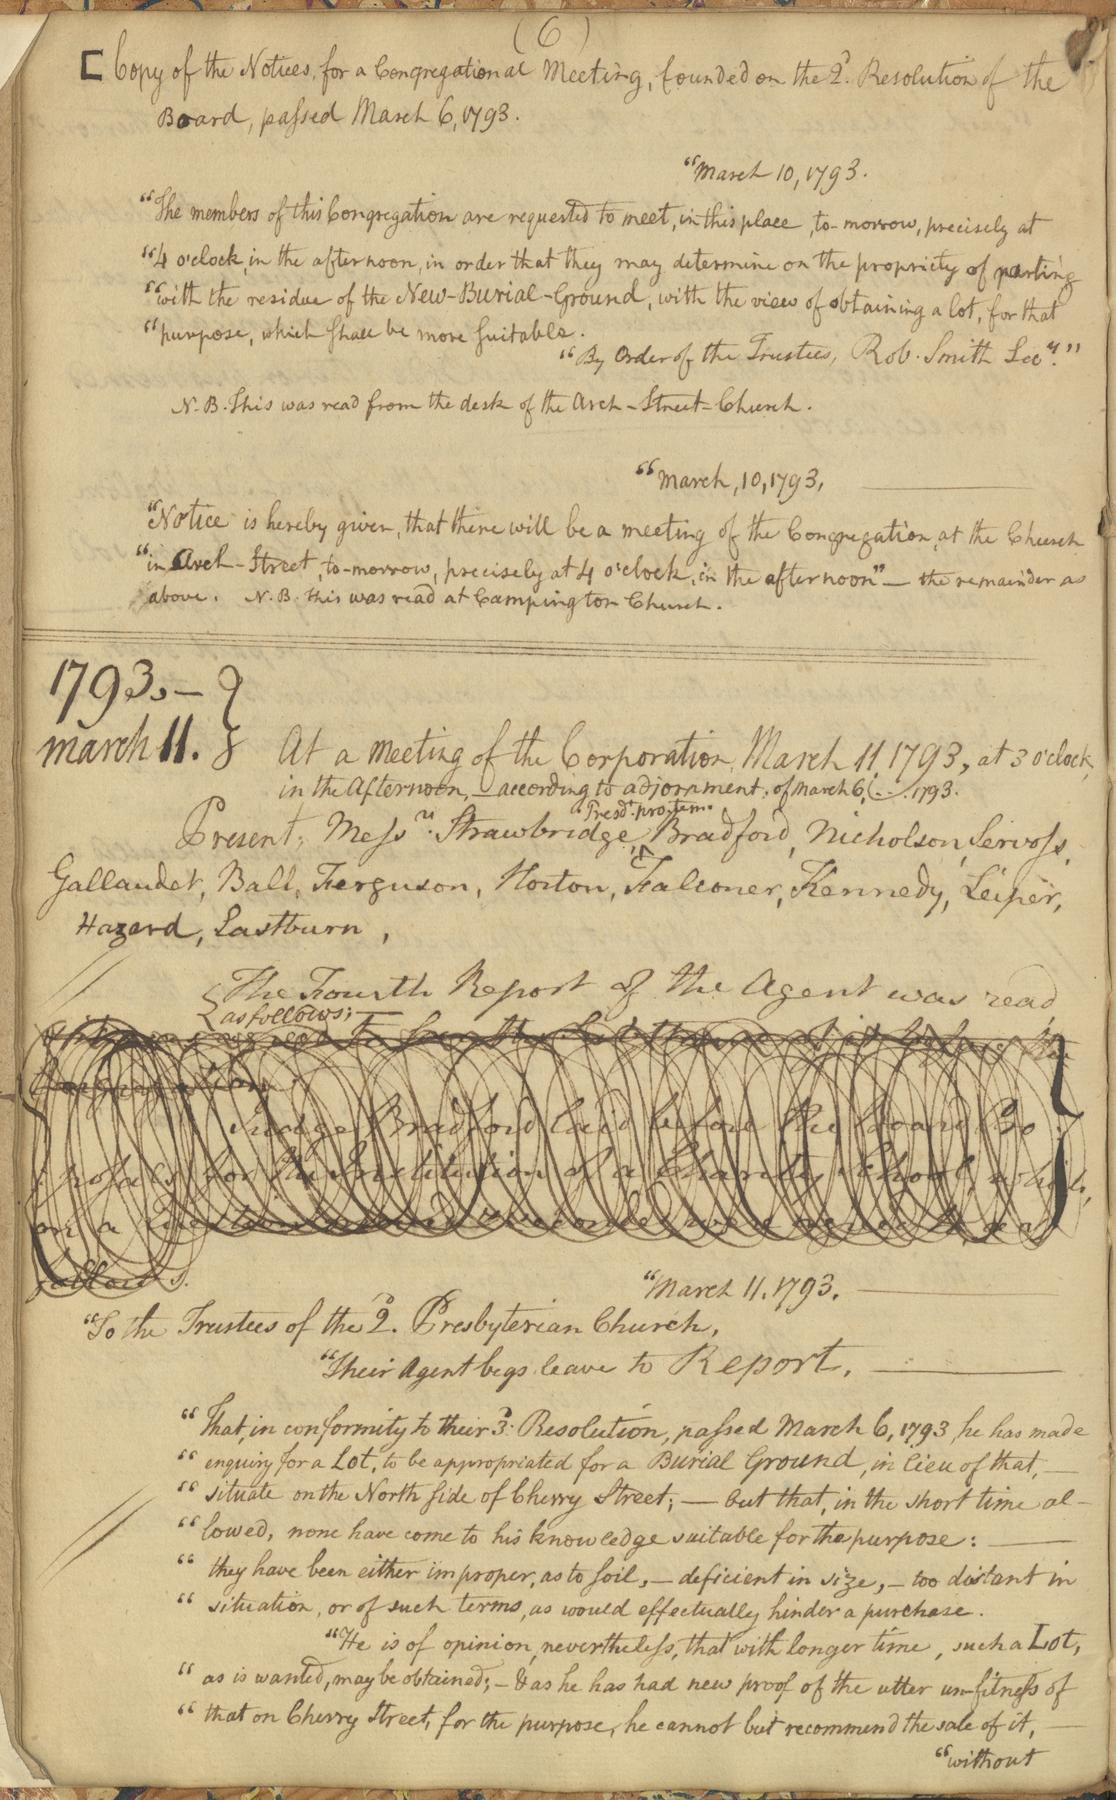 (6)
[ Copy of the Notices, for a Congregational Meeting, founded on the 2d. Resolution of the
Board, passed March 6, 1793.
"March 10, 1793.
"The members of this Congregation are requested to meet, in this place, to-morrow, precisely at
"4 o'clock, in the afternoon, in order that they may determine on the propriety of parting
"with the residue of the New-Burial-Ground, with the view of obtaining a lot, for that
"purpose, which shall be more suitable.
"By Order of the Trustees, Rob. Smith Secy."
N.B. This was read from the desk of the Arch-Street-Church.
"March, 10, 1793,
"Notice is hereby given, that there will be a meeting of the Congregation, at the Church
"in Arch-Street, to-morrow, precisely at 4 o'clock, in the afternoon" — the remainder as
above. N.B. this was read at Campington Church.
1793.—
march 11.
At a meeting of the Corporation, March 11, 1793, at 3 o'clock,
in the Afternoon, — according to adjornament, of March 6, 1793.
Presdt. pro. tem.
Present; Messrs. Strawbridge, Bradford, Nicholson, Servoss,
Gallaudet, Ball, Ferguson, Horton, Falconer, Kennedy, Leiper,
Hazard, Eastburn,
The Fourth Report of the Agent was read,
as follows;—
Congregation.
Judge Bradford laid before the Board Pro
posals for the Institution of a Charity School, which,
on a Question
follows.
"March 11. 1793.
"To the Trustees of the 2d. Presbyterian Church,
"Their Agent begs leave to Report,
"That, in conformity to their 3d. Resolution, passed March 6, 1793, he has made
"enquiry for a Lot, to be appropriated for a Burial Ground, in lieu of that, —
"situate on the North side of Cherry Street; — but that, in the short time al-
"lowed, none have come to his knowledge suitable for the purpose: —
"they have been either improper, as to soil, — deficient in size, — too distant in
"situation, or of such terms, as would effectually hinder a purchase.
"He is of opinion, nevertheless, that with longer time, such a Lot,
"as is wanted, may be obtained; — & as he has had new proof of the utter un-fitness of
"that on Cherry Street, for the purpose, he cannot but recommend the sale of it, —
"without